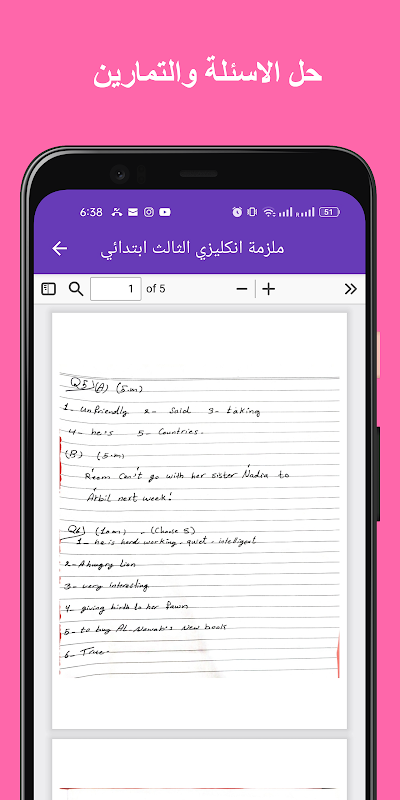 حل الاسئلة والتمارين
6:38 51
ملزمة انكليزي الثالث ابتدائي
1 of 5
Q5) (A) (5.m)
1- unfriendly 2- said 3- taking
4- he's 5- Countries.
(B) (5.m)
Reem Can't go with her sister Nadia to
Arbil next week!
Q6) (10m) - (Choose 5)
1- he is hard working. quiet. intelligent
2- A hungry Lion
3- very interesting
4- giving birth to her fawn
5- to buy AL-Nawab's New book
6- True.